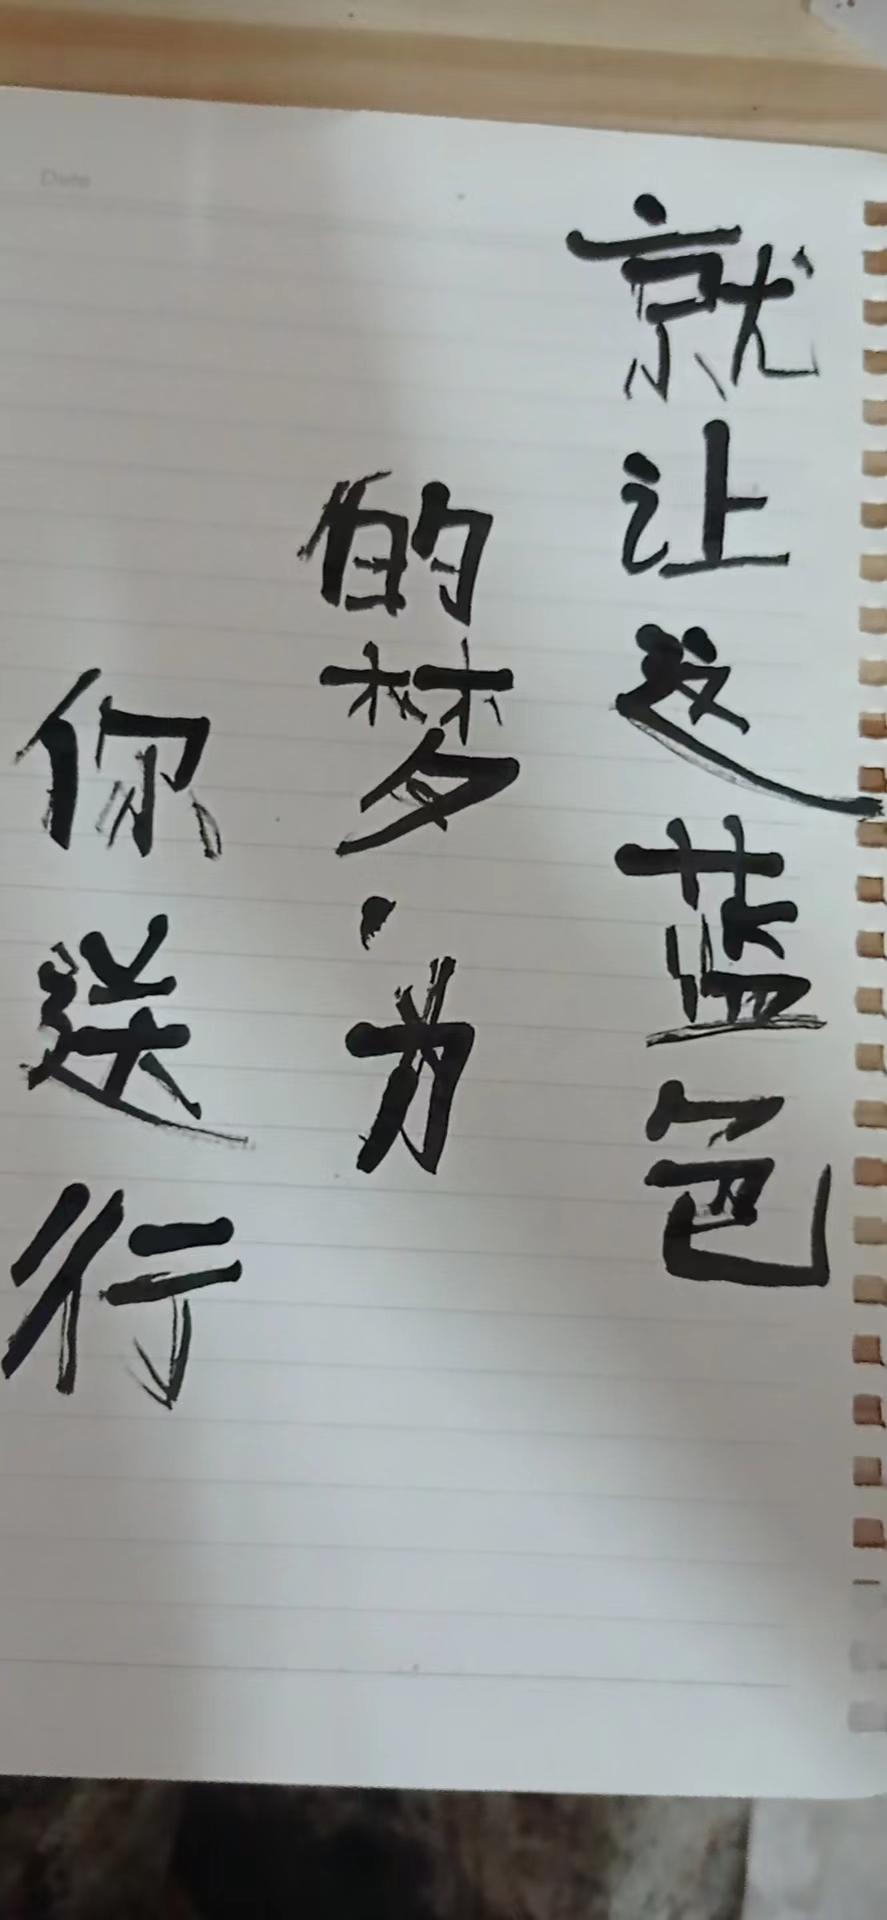 就让这蓝色
的梦，为
你送行
Date